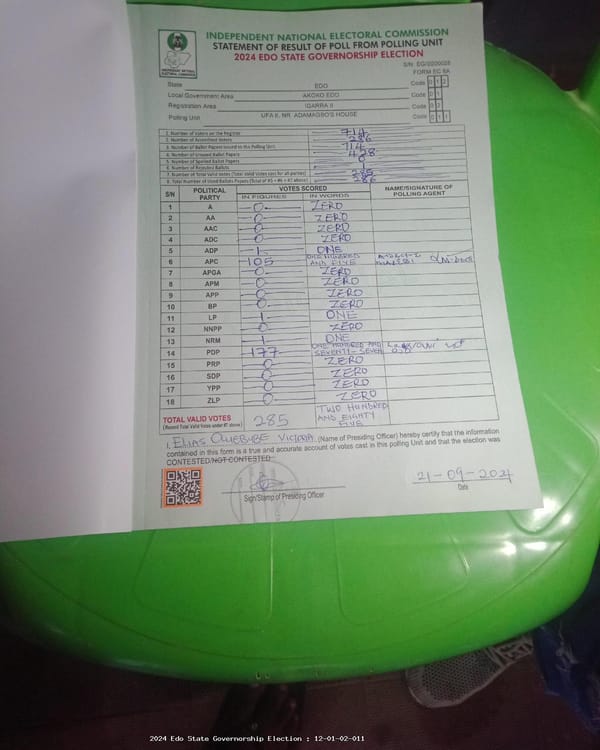 INDEPENDENT NATIONAL ELECTORAL COMMISSION
STATEMENT OF RESULT OF POLL FROM POLLING UNIT
2024 EDO STATE GOVERNORSHIP ELECTION
FORM EC 8A
State EDO Code 012
Local Government Area AKOKO EDO Code 01
Registration Area IGARRA II Code 02
Polling Unit UFA II, NR. ADAMAGBO'S HOUSE Code 011
1. Number of Voters on the Register 714
2. Number of Accredited Voters 286
3. Number of Ballot Papers Issued to the Polling Unit 714
4. Number of Unused Ballot Papers 428
5. Number of Spoiled Ballot Papers 0
6. Number of Rejected Ballots 1
7. Number of Total Valid Votes (Total Valid Votes cast for all parties) 285
8. Total Number of Used Ballots Papers (Total of #5 + #6 + #7 above) 286
S/N POLITICAL PARTY VOTES SCORED NAME/SIGNATURE OF POLLING AGENT
IN FIGURES IN WORDS
1 A 0 ZERO
2 AA 0 ZERO
3 AAC 0 ZERO
4 ADC 0 ZERO
5 ADP 1 ONE
6 APC 105 ONE HUNDRED AND FIVE
7 APGA 0 ZERO
8 APM 0 ZERO
9 APP 0 ZERO
10 BP 0 ZERO
11 LP 1 ONE
12 NNPP 0 ZERO
13 NRM 1 ONE
14 PDP 177 ONE HUNDRED AND SEVENTY-SEVEN
15 PRP 0 ZERO
16 SDP 0 ZERO
17 YPP 0 ZERO
18 ZLP 0 ZERO
TOTAL VALID VOTES 285 TWO HUNDRED AND EIGHTY FIVE
I, ELIAS VICTORIA (Name of Presiding Officer) hereby certify that the information
contained in this form is a true and accurate account of votes cast in this polling Unit and that the election was
CONTESTED/NOT CONTESTED
21-09-2024
Sign/Stamp of Presiding Officer Date
2024 Edo State Governorship Election : 12-01-02-011